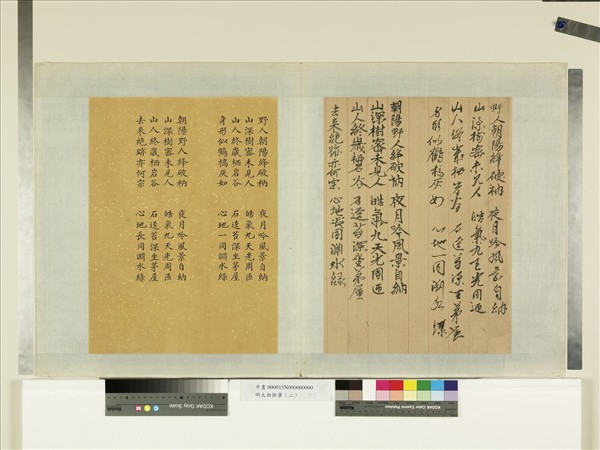 野人朝陽綘破衲 夜月吟風景自納
山深樹密未見人 皓氣九天光周迊
山人終歲栖岩谷 石逕苔深生茅屋
身形似鶴槁灰如 心地一同澗水淥
朝陽野人綘破衲 夜月吟風景自納
山深樹密未見人 皓氣九天光周迊
山人終歲栖岩谷 石逕苔深生茅屋
去來絕跡亦何宗 心地長同澗水綠
野人朝陽綘破衲 夜月吟風景自納
山深樹密未見人 皓氣九天光周匝
山人終歲栖岩谷 石逕苔深生茅屋
身形似鶴槁灰如 心地一同澗水綠
朝陽野人綘破衲 夜月吟風景自納
山深樹密未見人 皓氣九天光周匝
山人終歲栖岩谷 石逕苔深生茅屋
去來絕跡亦何宗 心地長同澗水綠
中書 000015N000000000
明太祖御筆（二）
KODAK Gray Scale
KODAK Color Control Patches